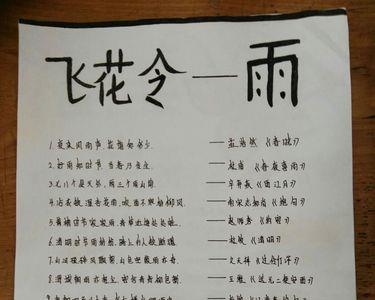 飞花令—雨
1.夜来风雨声 花落知多少 ——孟浩然《春晓》
2.好雨知时节 当春乃发生 ——杜甫《春夜喜雨》
3.七八个星天外,两三个雨山前 ——辛弃疾《西江月》
4.沾衣欲湿杏花雨,吹面不寒杨柳风 ——
5.黄梅时节家家雨,青草池塘处处蛙 ——赵师秀《
6.清明时节雨纷纷,路上行人欲断魂 ——杜牧《清明》
7.山河破碎风飘絮,身世浮沉雨打萍 ——文天祥《过零丁洋》
8.渭城朝雨浥轻尘,客舍青青柳色新 ——王维《送元二使安西》